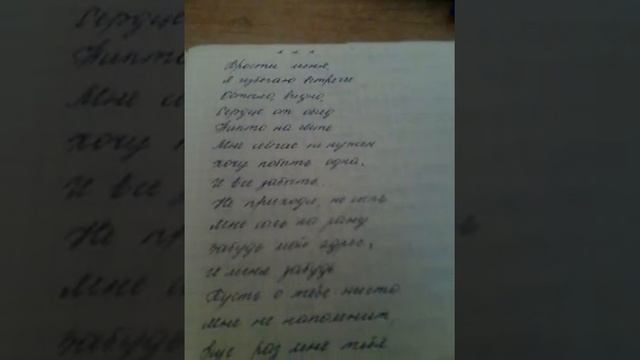 * * *
Прости меня,
Я избегаю встречи
Устало, видно,
Сердце от обид
Никто на свете
Мне сейчас не нужен
Хочу побыть одна,
И все забыть.
Не приходи, не сыпь
Мне соль на рану
Забудь мой адрес,
И меня забудь
Пусть о тебе никто
Мне не напомнит,
раз мне тебя